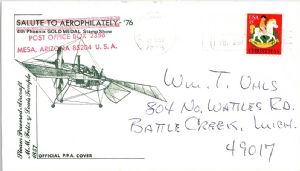 SALUTE TO AEROPHILATELY '76
4th Phoenix GOLD MEDAL Stamp Show
POST OFFICE BOX 2398
MESA, ARIZONA 85204 U. S. A.
USA
CHRISTMAS
Wm. T. Uhls
804 No. Wattles Rd.
Battle Creek, Mich.
49017
Steam Powered Aircraft
1857
OFFICIAL P.P.A. COVER